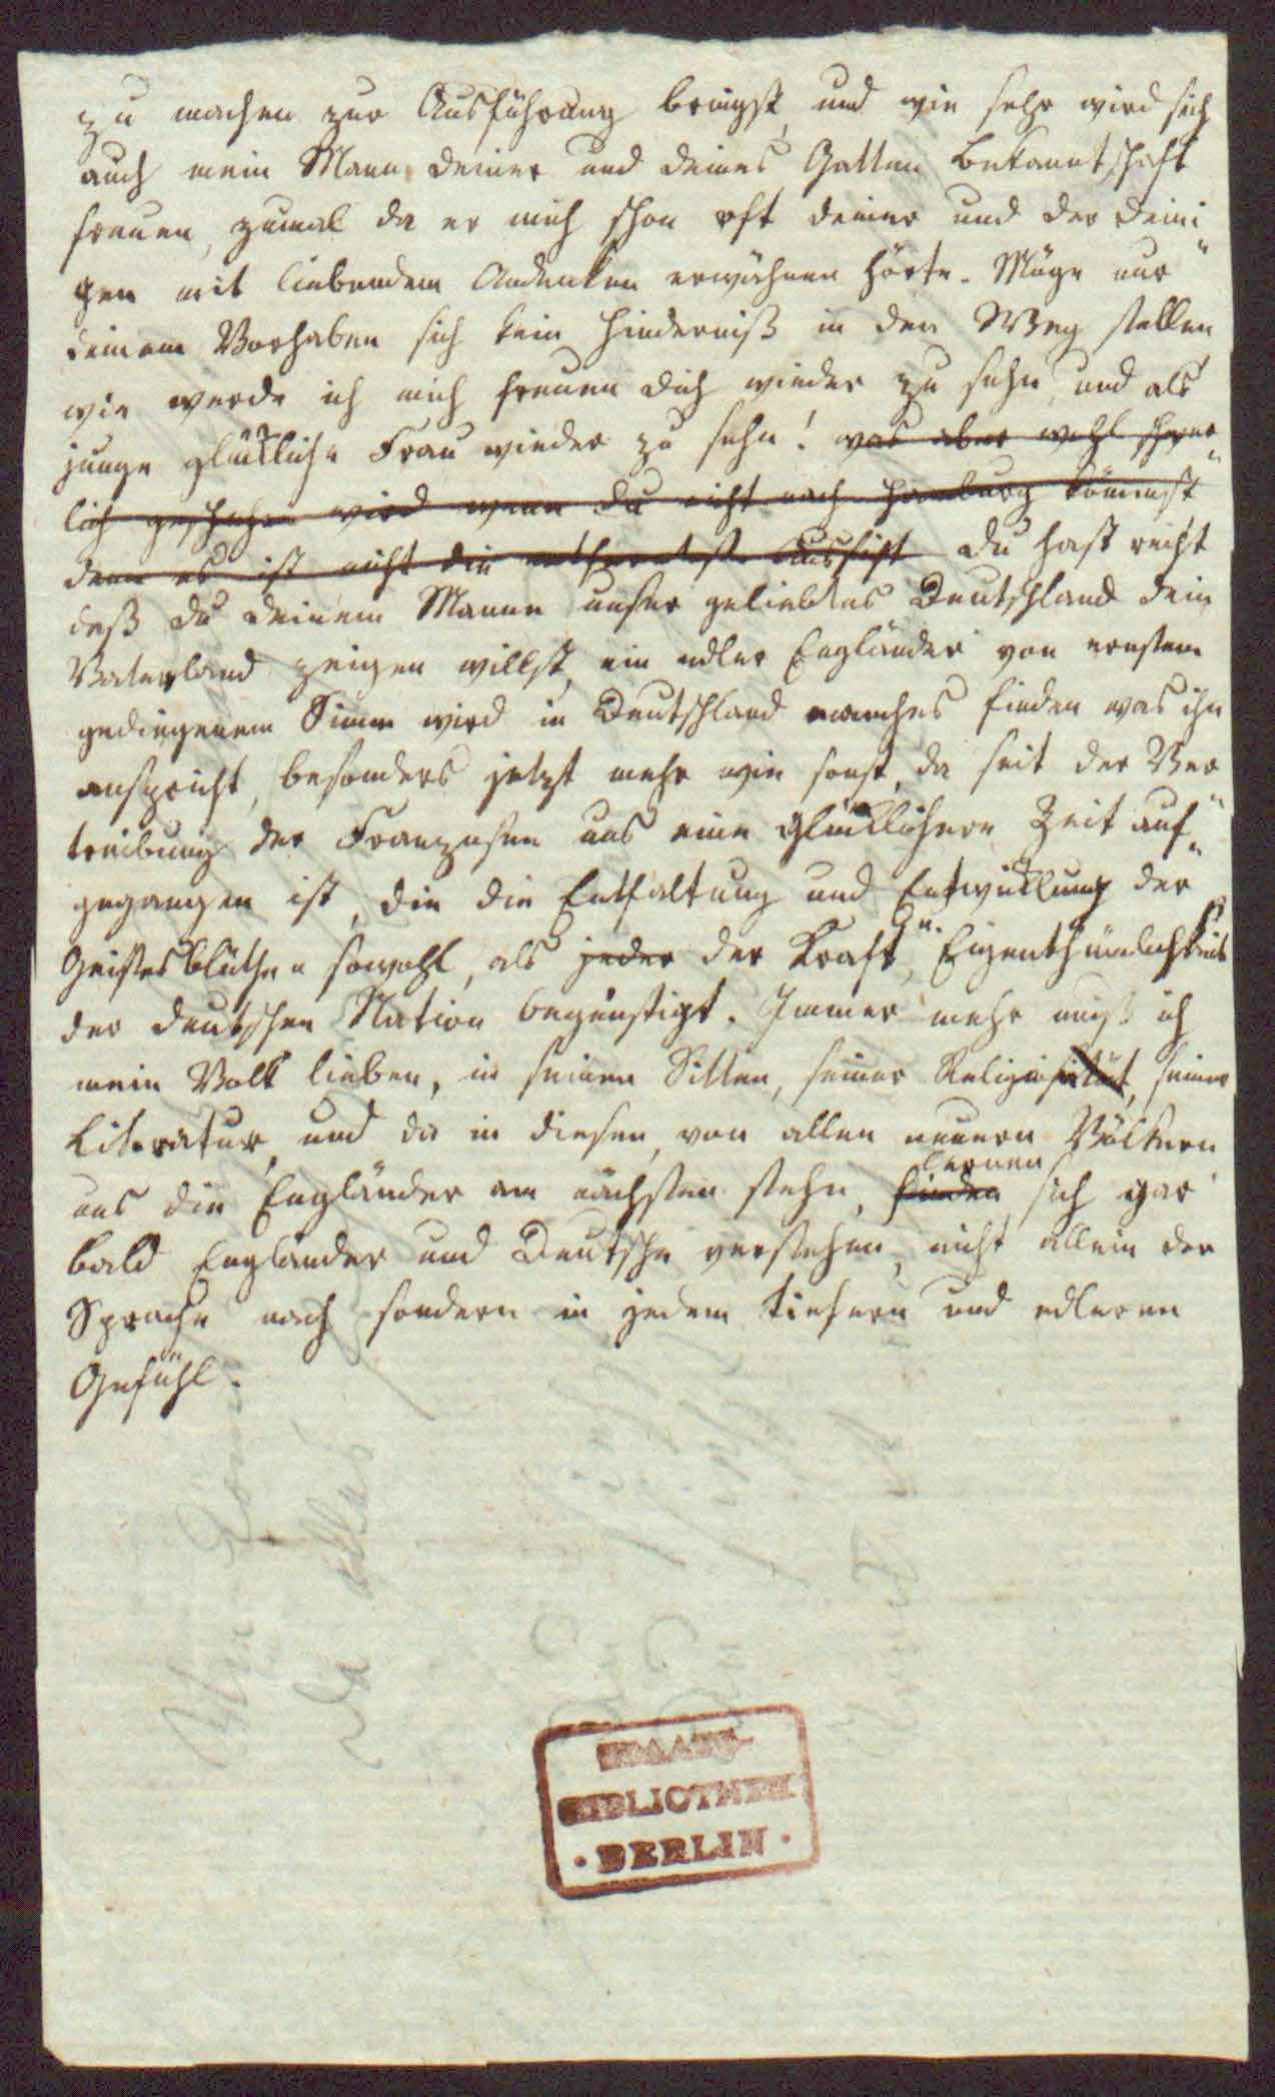 zu machen zur Ausführung bringst, und wie sehr wird sich
auch mein Mann deiner und deines Gatten Bekanntschaft
freuen, zumal da er mich schon oft deiner und der Deini
gen mit liebendem Andenken erwähnen hörte. Möge nur
deinem Vorhaben sich kein Hinderniß in den Weg stellen
wie werde ich mich freuen dich wieder zu sehn, und als
junge glückliche Frau wieder zu sehn! was aber wohl schwer
lich geschehen wird wenn du nicht nach Hamburg kömmst
denn es ist nicht die entfernteste Aussicht du hast recht
daß du deinem Manne unser geliebtes Deutschland dein
Vaterland zeigen willst, ein edler Engländer von ernstem
gediegenem Sinn wird in Deutschland manches finden was ihn
anspricht, besonders jetzt mehr wie sonst, da seit der Ver
treibung der Franzosen uns eine glücklichere Zeit auf
gegangen ist, die die Entfaltung und Entwicklung der
Geistesblüthen sowohl, als jeder der Kraft u. Eigenthümlichkeit
der deutschen Nation begünstigt. Immer mehr muß ich
mein Volk lieben, in seinen Sitten, seiner Religiosität, seiner
Literatur, und da in diesen, von allen neuern Völkern
uns die Engländer am nächsten stehn, finden lernen sich gar
bald Engländer und Deutsche verstehen, nicht allein der
Sprache nach sondern in jedem tiefern und edleren
Gefühl.
STAATS-
BIBLIOTHEK
· BERLIN ·